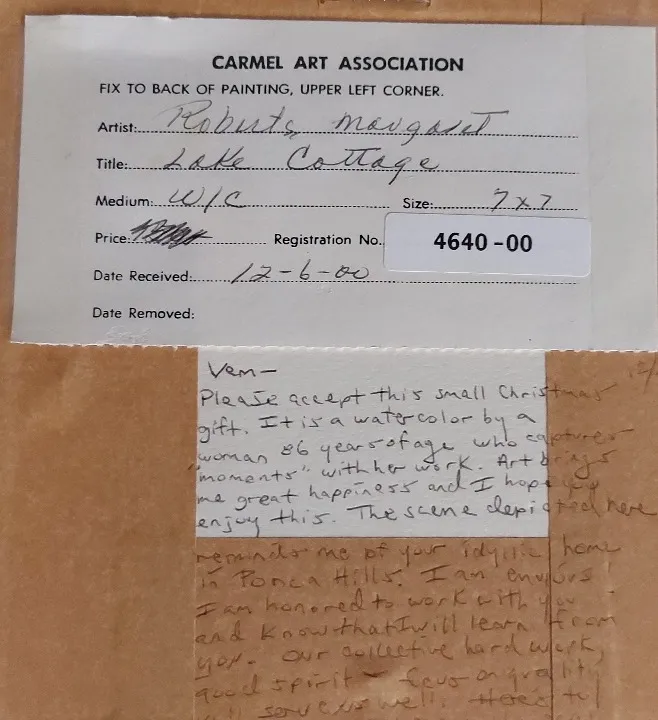 CARMEL ART ASSOCIATION
FIX TO BACK OF PAINTING, UPPER LEFT CORNER.
Artist: Roberts, Margaret
Title: Lake Cottage
Medium: W/C Size: 7 x 7
Price: Registration No. 4640-00
Date Received: 12-6-00
Date Removed:
Vern-
Please accept this small Christmas
gift. It is a watercolor by a
woman 86 years of age who captures
"moments" with her work. Art brings
me great happiness and I hope you
enjoy this. The scene depicted here
reminds me of your idyllic home
in Ponca Hills. I am envious!
I am honored to work with you
and know that I will learn from
you. Our collective hard work,
good spirit - focus on quality
serve us well. Here's to